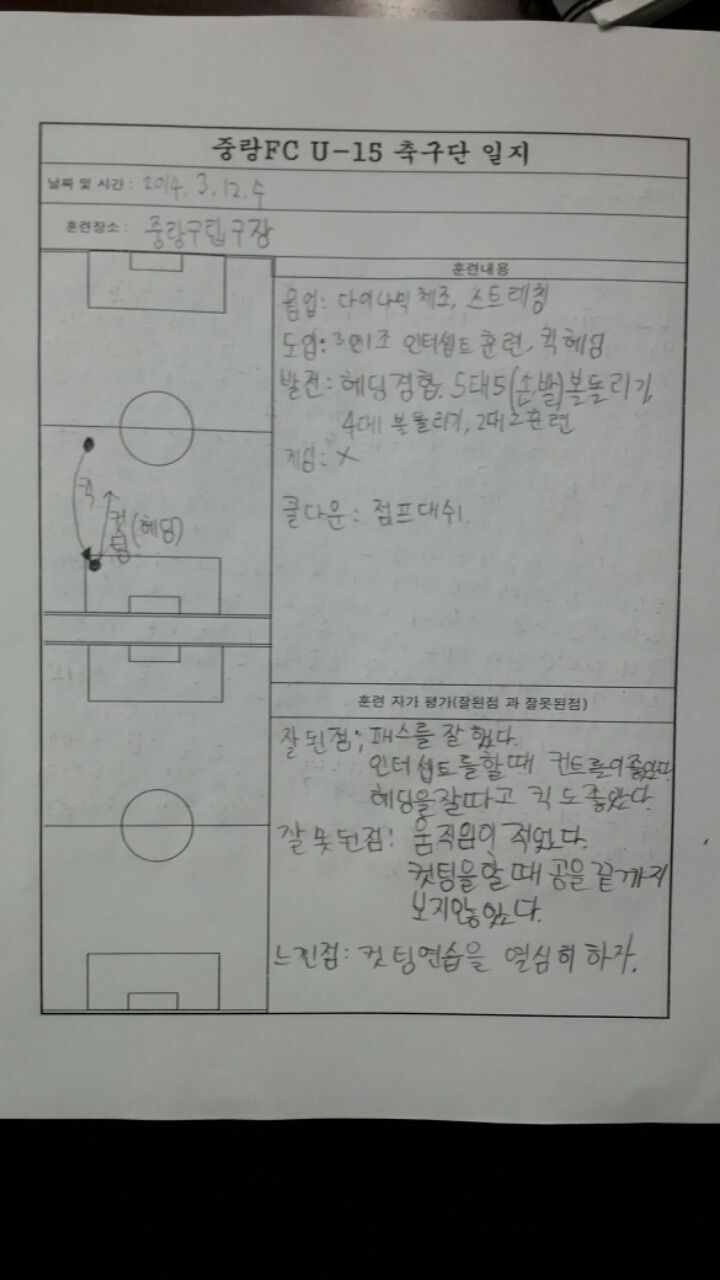 중랑FC U-15 축구단 일지
날짜 및 시간 : 2014. 3. 12. 수
훈련장소 : 중랑구립구장
훈련내용
웜업: 다이나믹 체조, 스트레칭
도입: 3인1조 인터셉트 훈련, 킥 헤딩
발전: 헤딩경합. 5대5(손,발)볼돌리기,
4대1 볼돌리기, 2대2훈련
게임: X
쿨다운: 점프대쉬.
킥
컷팅(헤딩)
훈련 자가 평가(잘된점 과 잘못된점)
잘된점; 패스를 잘 했다.
인터셉트를할때 컨트롤이좋았다
헤딩을잘따고 킥도좋았다.
잘못된점: 움직임이 적었다.
컷팅을할때 공을끝까지
보지않았다.
느낀점: 컷팅연습을 열심히 하자.